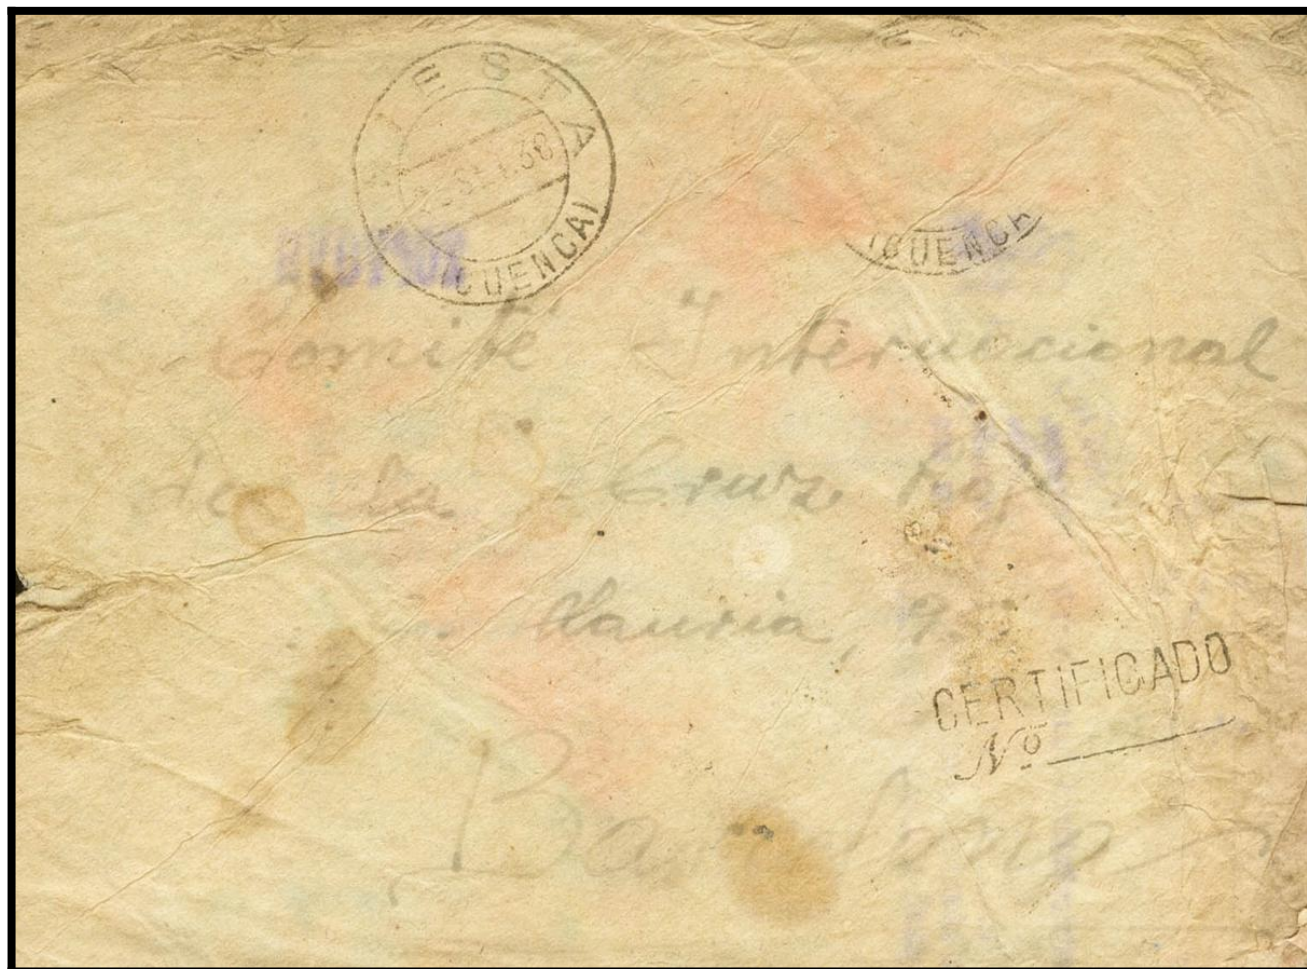 INIESTA
(CUENCA)
CUENCA
Comité Internacional
de la Cruz Roja
Lauria, 9
CERTIFICADO
Nº
Barcelona